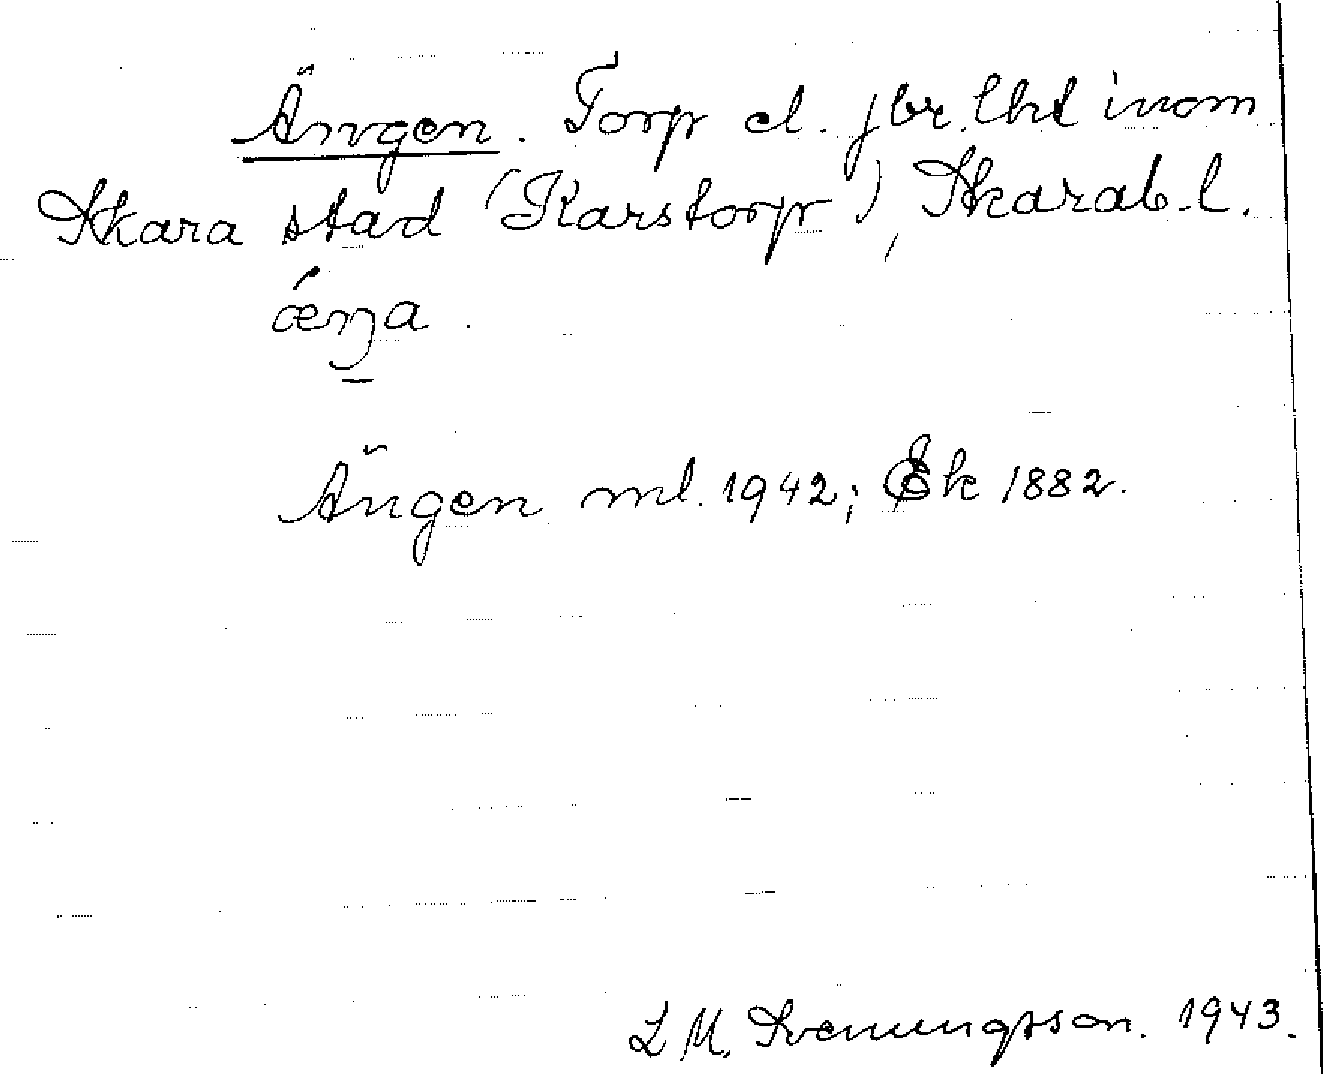 Ängen. Torp el. jbr. lht inom
Skara stad (Karstorp), Skarab. l.
ǽŋa.
Ängen ml. 1942; Ek 1882.
L M. Svenungsson. 1943.